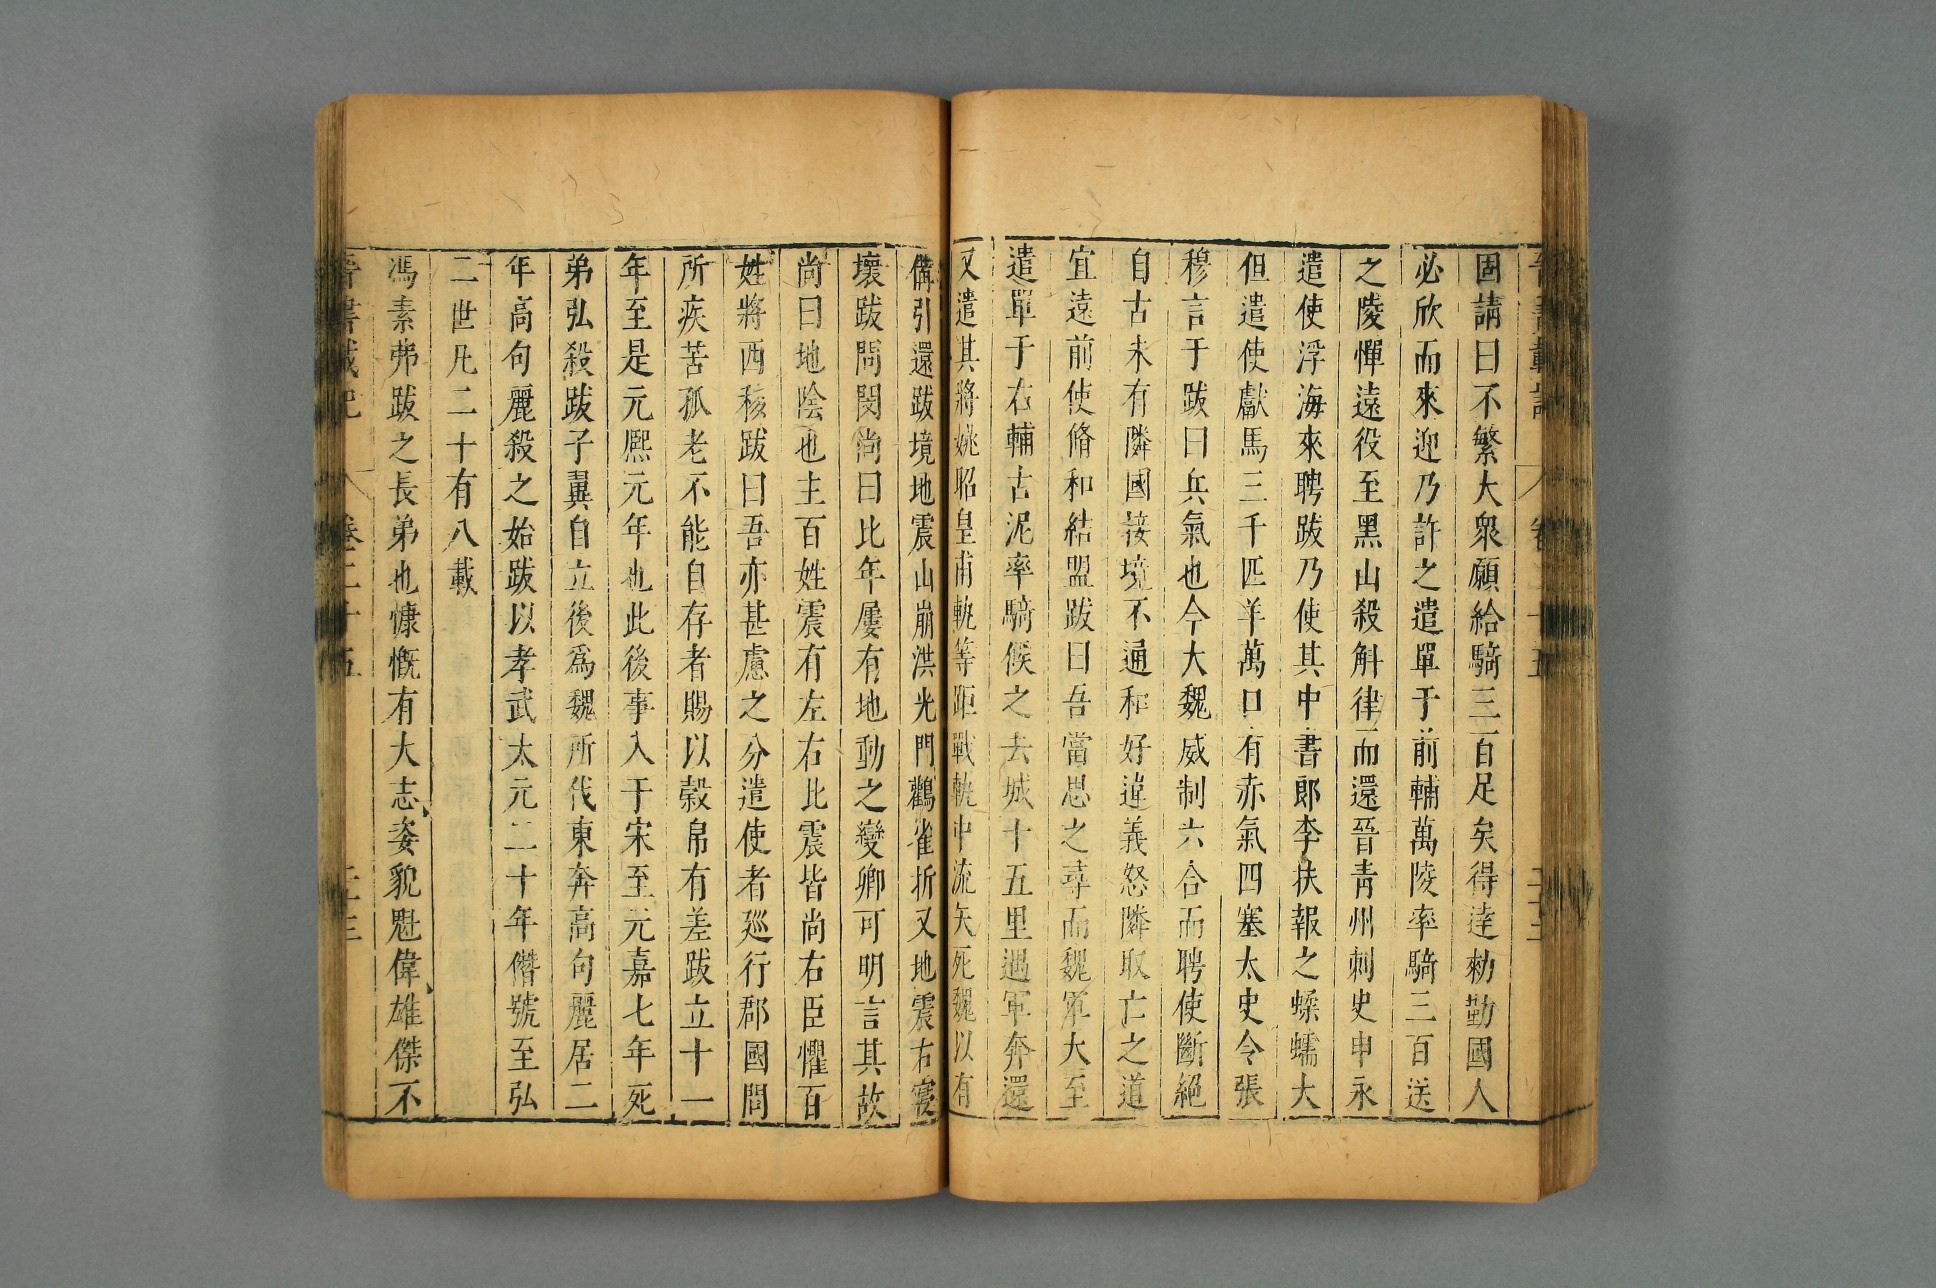 晉書載記 卷二十五 二十三
固請曰不繁大衆願給騎三百足矣得達勑勤國人
必欣而來迎乃許之遣單于前輔萬陵率騎三百送
之陵憚遠役至黑山殺斛律而還晉靑州刺史申永
遣使浮海來聘跋乃使其中書郎李扶報之蝚蠕大
但遣使獻馬三千匹羊萬口有赤氣四塞太史令張
穆言于跋曰兵氣也今大魏威制六合而聘使斷絕
自古未有隣國接境不通和好違義怒隣取亡之道
宜遠前使脩和結盟跋曰吾當思之尋而魏軍大至
遣單于右輔古泥率騎候之去城十五里遇軍奔還
又遣其將姚昭皇甫軌等距戰軌中流矢死魏以有
備引還跋境地震山崩洪光門鸛雀折又地震右寢
壞跋問閔尚曰比年屢有地動之變卿可明言其故
尚曰地陰也主百姓震有左右比震皆尚右臣懼百
姓將西移跋曰吾亦甚慮之分遣使者廵行郡國問
所疾苦孤老不能自存者賜以穀帛有差跋立十一
年至是元熙元年也此後事入于宋至元嘉七年死
弟弘殺跋子翼自立後爲魏所代東奔高句麗居二
年高句麗殺之始跋以孝武太元二十年僭號至弘
二世凡二十有八載
馮素弗跋之長弟也慷慨有大志姿貌魁偉雄傑不
晉書載記 卷二十五 二十三